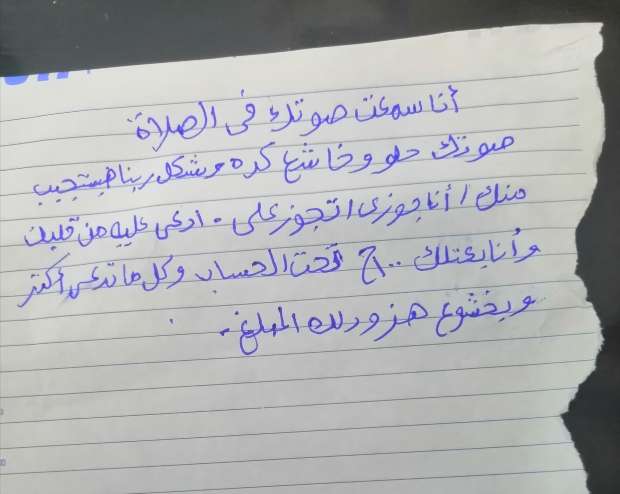 أنا سمعت صوتك فى الصلاة
صوتك حلو وخاشع كده وشكل ربنا هيستجيب
منك / أنا جوزى اتجوز على . ادعى عليه من قلبك
وأنا بعتلك ٢٠٠ج تحت الحساب وكل ما تدعى أكتر
وبخشوع هزودلك المبلغ .